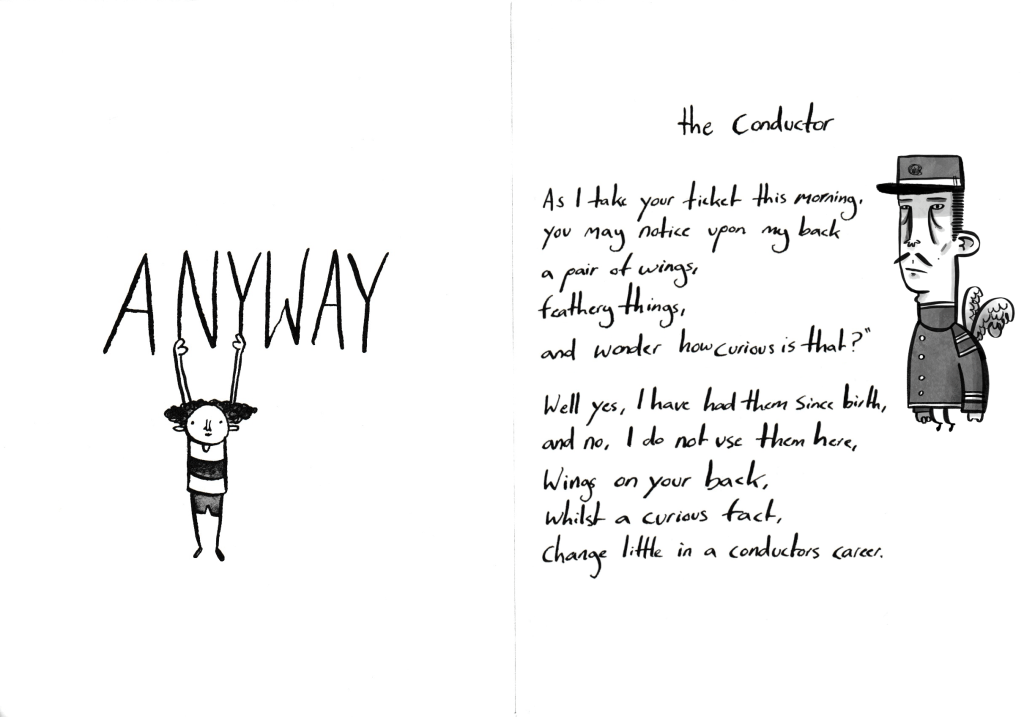 ANYWAY
the Conductor
As I take your ticket this morning,
you may notice upon my back
a pair of wings,
feathery things,
and wonder how curious is that?"
Well yes, I have had them since birth,
and no, I do not use them here,
Wings on your back,
whilst a curious fact,
change little in a conductors career.